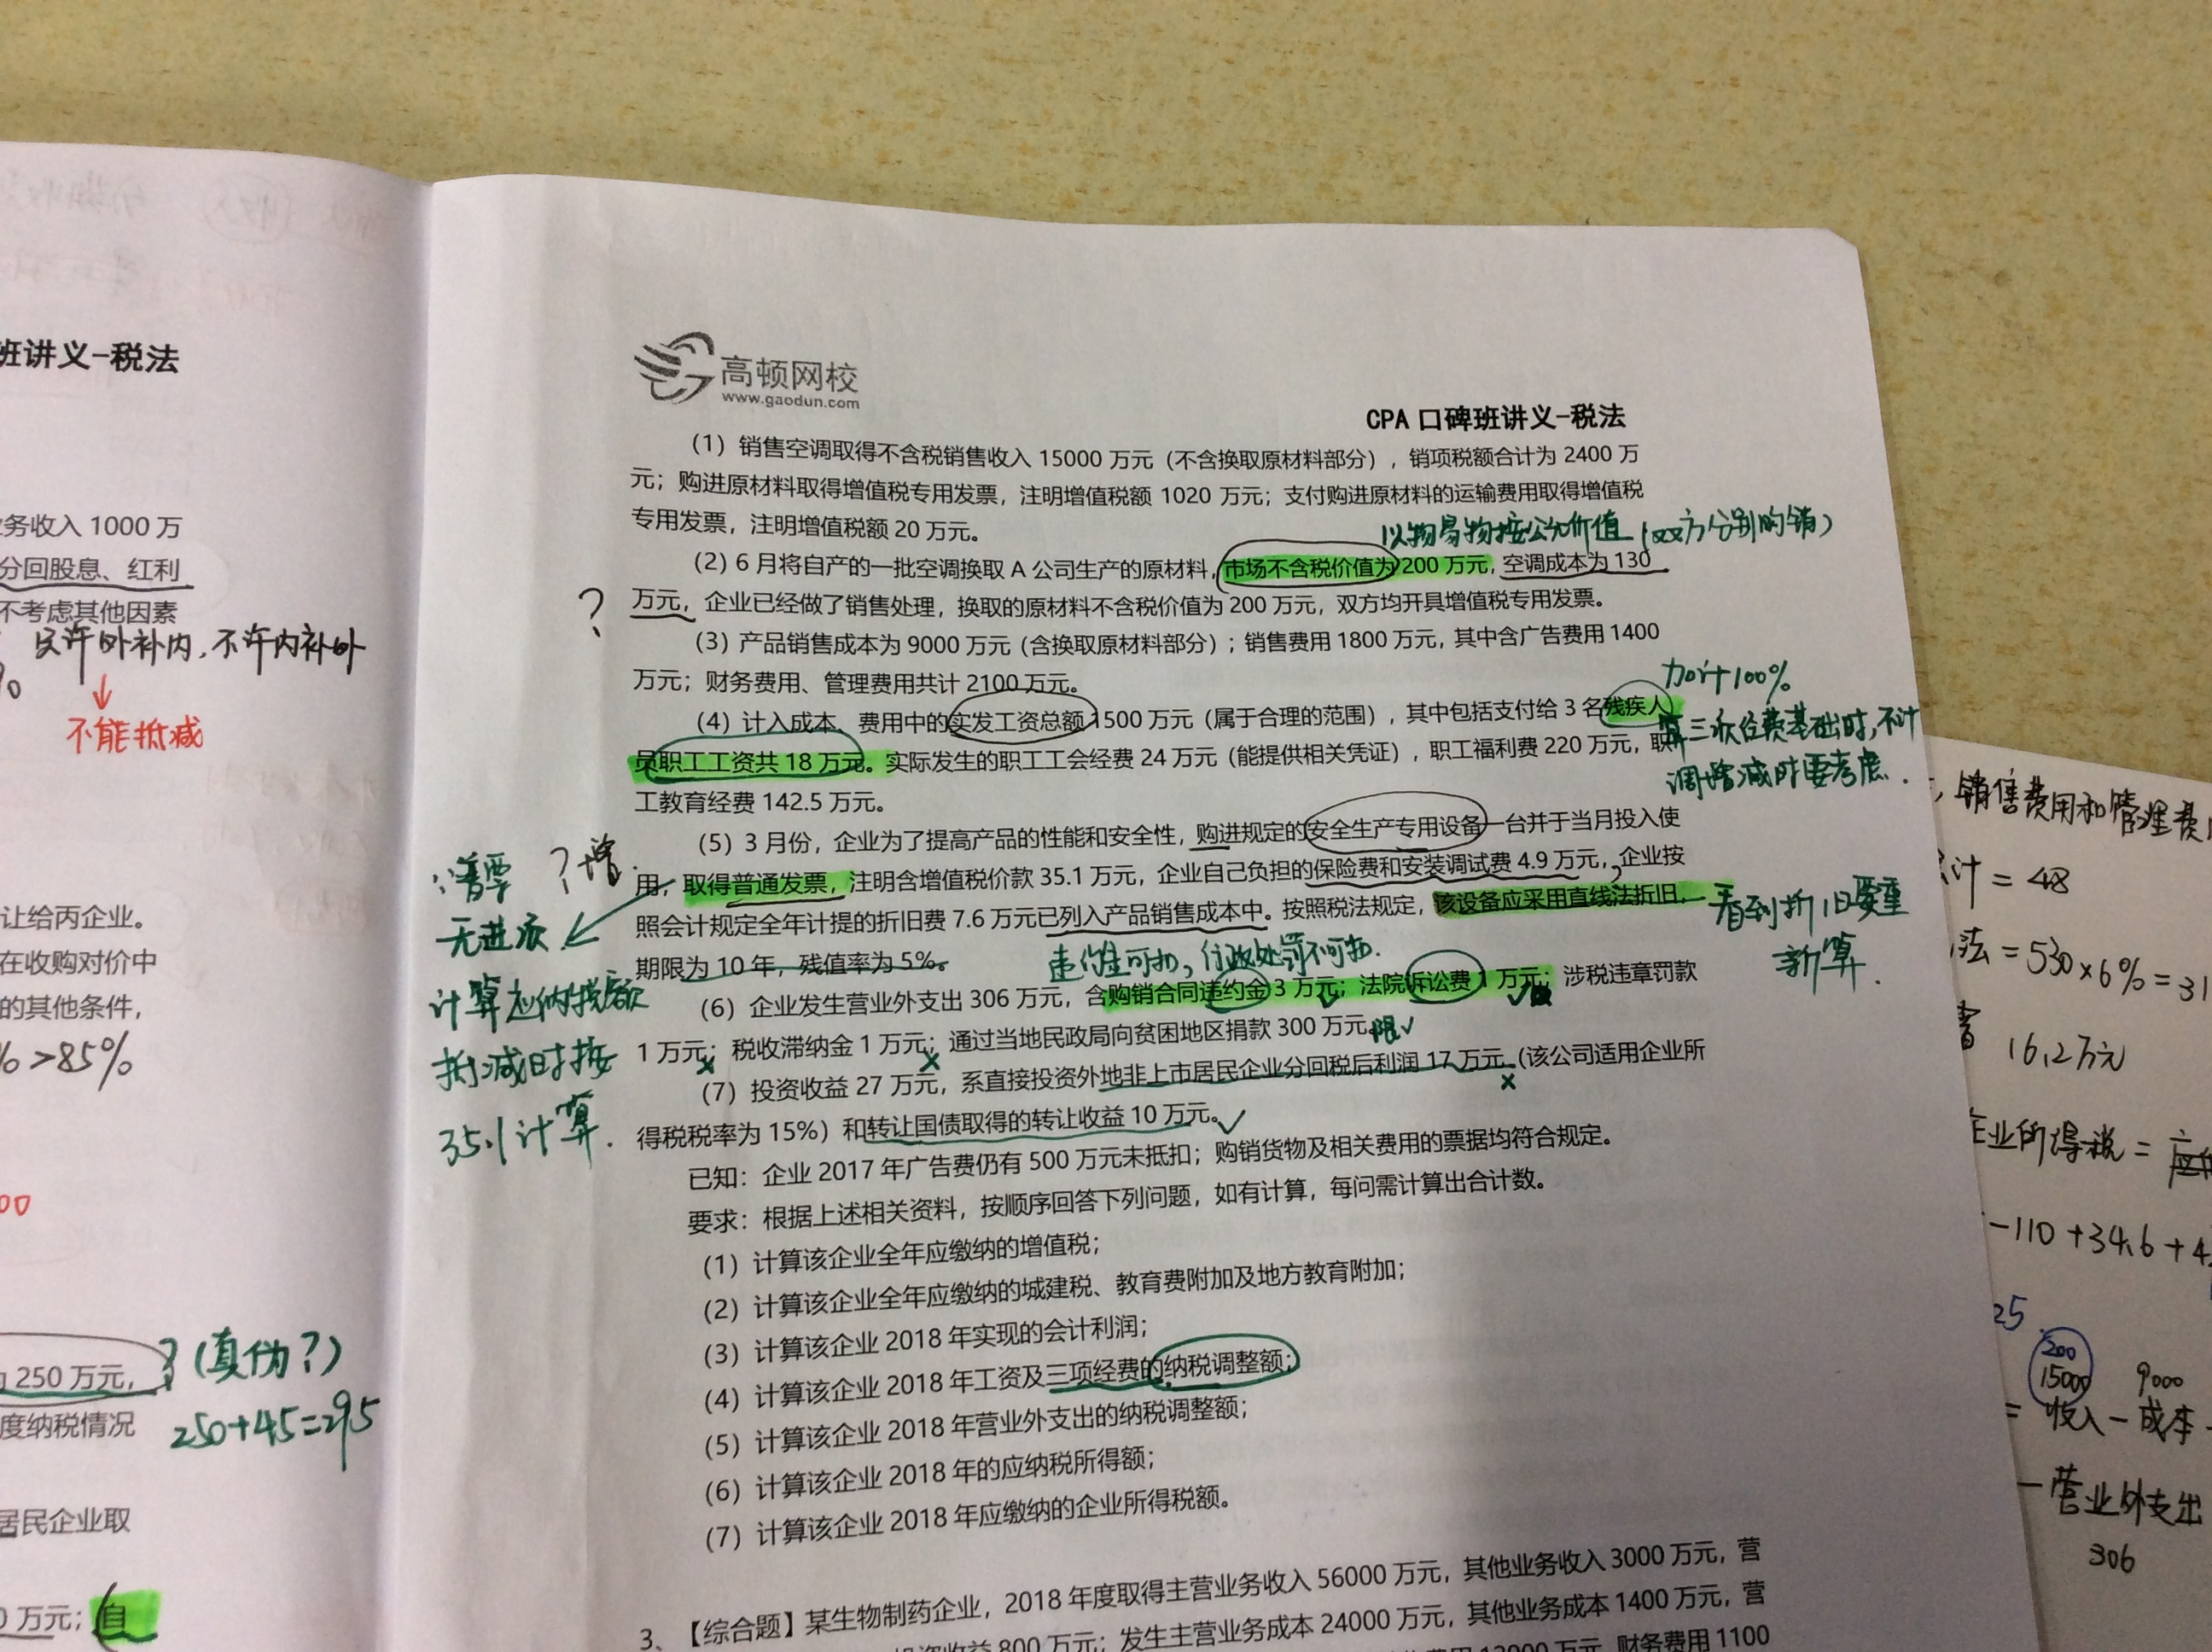 班讲义-税法
务收入 1000 万
分回股息、红利
不考虑其他因素
只许外补内,不许内补外
不能抵减
让给丙企业。
在收购对价中
的其他条件,
% >85%
00
250 万元,
?(真伪?)
度纳税情况
250+45=295
居民企业取
0 万元;自
高顿网校
www.gaodun.com
CPA 口碑班讲义-税法
(1)销售空调取得不含税销售收入 15000 万元(不含换取原材料部分),销项税额合计为 2400 万
元;购进原材料取得增值税专用发票,注明增值税额 1020 万元;支付购进原材料的运输费用取得增值税
专用发票,注明增值税额 20 万元。
以物易物按公允价值(双方分别购销)
(2)6 月将自产的一批空调换取 A 公司生产的原材料,市场不含税价值为 200 万元,空调成本为 130
?
万元,企业已经做了销售处理,换取的原材料不含税价值为 200 万元,双方均开具增值税专用发票。
(3)产品销售成本为 9000 万元(含换取原材料部分);销售费用 1800 万元,其中含广告费用 1400
万元;财务费用、管理费用共计 2100 万元。
加计100%
(4)计入成本、费用中的实发工资总额 1500 万元(属于合理的范围),其中包括支付给 3 名残疾人
算三项经费基础时,不计
员职工工资共 18 万元。实际发生的职工工会经费 24 万元(能提供相关凭证),职工福利费 220 万元,职
调增减时要考虑.
工教育经费 142.5 万元。
(5)3 月份,企业为了提高产品的性能和安全性,购进规定的安全生产专用设备一台并于当月投入使
∵普票
?增
用,取得普通发票,注明含增值税价款 35.1 万元,企业自己负担的保险费和安装调试费 4.9 万元,企业按
无进项
照会计规定全年计提的折旧费 7.6 万元已列入产品销售成本中。按照税法规定,该设备应采用直线法折旧,
看到折旧要重
新算.
期限为 10 年,残值率为 5%。
违约金可扣,行政处罚不可扣.
计算应纳税额
抵减时按
35.1计算.
(6)企业发生营业外支出 306 万元,含购销合同违约金 3 万元;法院诉讼费 1 万元;涉税违章罚款
1 万元;税收滞纳金 1 万元;通过当地民政局向贫困地区捐款 300 万元。限√
(7)投资收益 27 万元,系直接投资外地非上市居民企业分回税后利润 17 万元(该公司适用企业所
得税税率为 15%)和转让国债取得的转让收益 10 万元。
已知:企业 2017 年广告费仍有 500 万元未抵扣;购销货物及相关费用的票据均符合规定。
要求:根据上述相关资料,按顺序回答下列问题,如有计算,每问需计算出合计数。
(1)计算该企业全年应缴纳的增值税;
(2)计算该企业全年应缴纳的城建税、教育费附加及地方教育附加;
(3)计算该企业 2018 年实现的会计利润;
(4)计算该企业 2018 年工资及三项经费的纳税调整额;
(5)计算该企业 2018 年营业外支出的纳税调整额;
(6)计算该企业 2018 年的应纳税所得额;
(7)计算该企业 2018 年应缴纳的企业所得税额。
3、【综合题】某生物制药企业,2018 年度取得主营业务收入 56000 万元,其他业务收入 3000 万元,营
投资收益 800 万元;发生主营业务成本 24000 万元,其他业务成本 1400 万元,营
12000 万元,财务费用 1100
,销售费用和管理费
计 = 48
法 = 530×6% = 31
16.2万元
企业所得税 =
-110 +34.6 +4
25
200
15000 9000
= 收入 - 成本 -
- 营业外支出
306